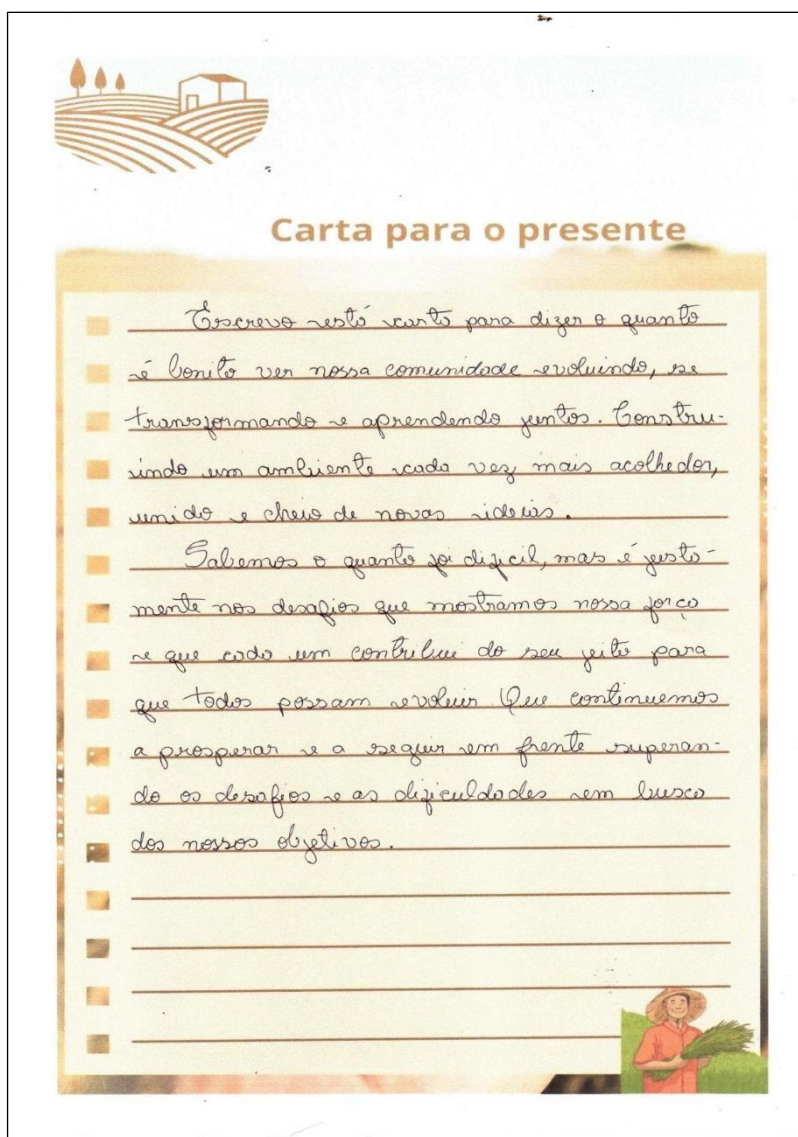 Carta para o presente
Escrevo esta carta para dizer o quanto
é bonito ver nossa comunidade evoluindo, se
transformando e aprendendo juntos. Constru-
indo um ambiente cada vez mais acolhedor,
unido e cheio de novas ideias.
Sabemos o quanto foi difícil, mas é justa-
mente nos desafios que mostramos nossa força
e que cada um contribui do seu jeito para
que todos possam evoluir. Que continuemos
a prosperar e a seguir em frente superan-
do os desafios e as dificuldades em busca
dos nossos objetivos.